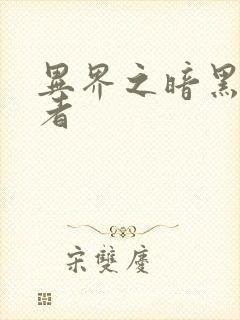 異界之暗黑
者
宋雙慶